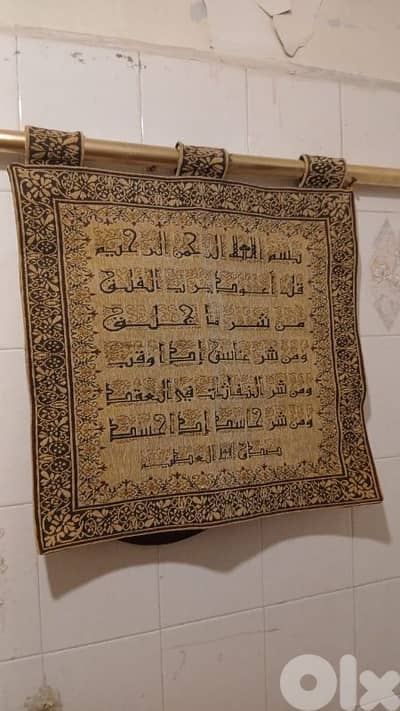 بسم الله الرحمن الرحيم
قل أعوذ برب الفلق
من شر ما خلق
ومن شر غاسق إذا وقب
ومن شر النفاثات في العقد
ومن شر حاسد إذا حسد
صدق الله العظيم
OLX